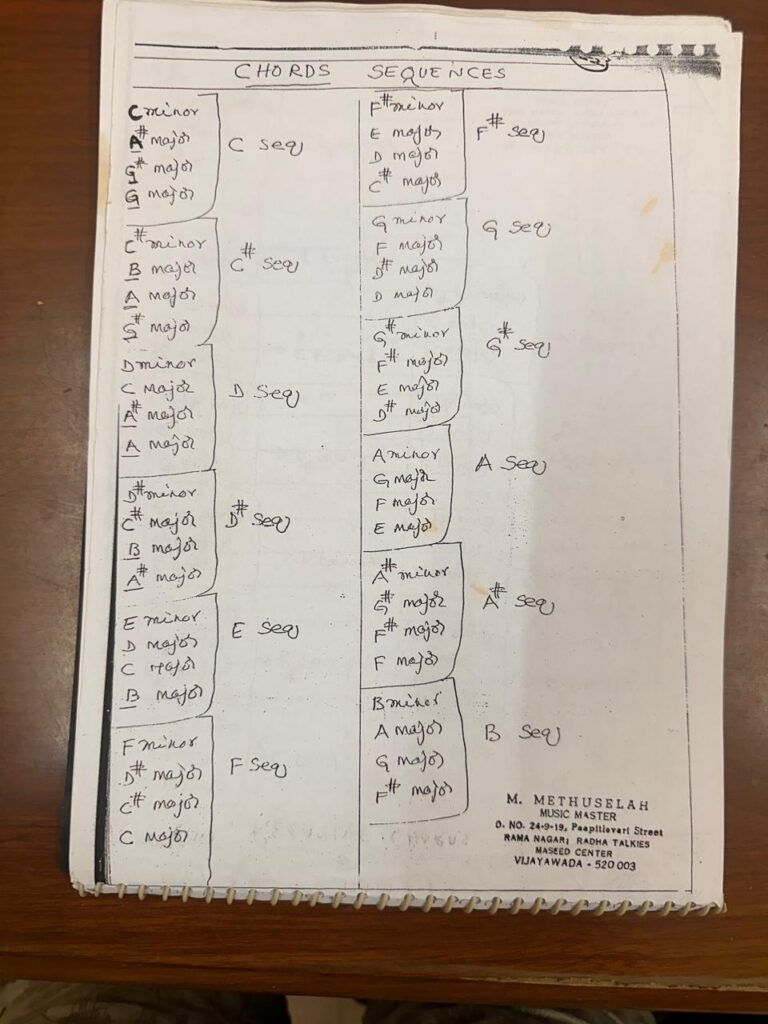 CHORDS SEQUENCES
C minor
A# major
G# major
G major
C seq
C# minor
B major
A major
G# major
C# seq
D minor
C major
A# major
A major
D seq
D# minor
C# major
B major
A# major
D# seq
E minor
D major
C major
B major
E seq
F minor
D# major
C# major
C major
F seq
F# minor
E major
D major
C# major
F# seq
G minor
F major
D# major
D major
G seq
G# minor
F# major
E major
D# major
G# seq
A minor
G major
F major
E major
A seq
A# minor
G# major
F# major
F major
A# seq
B minor
A major
G major
F# major
B seq
M. METHUSELAH
MUSIC MASTER
D. NO. 24-9-19, Paapitlevari Street
RAMA NAGAR; RADHA TALKIES
MASEED CENTER
VIJAYAWADA - 520 003